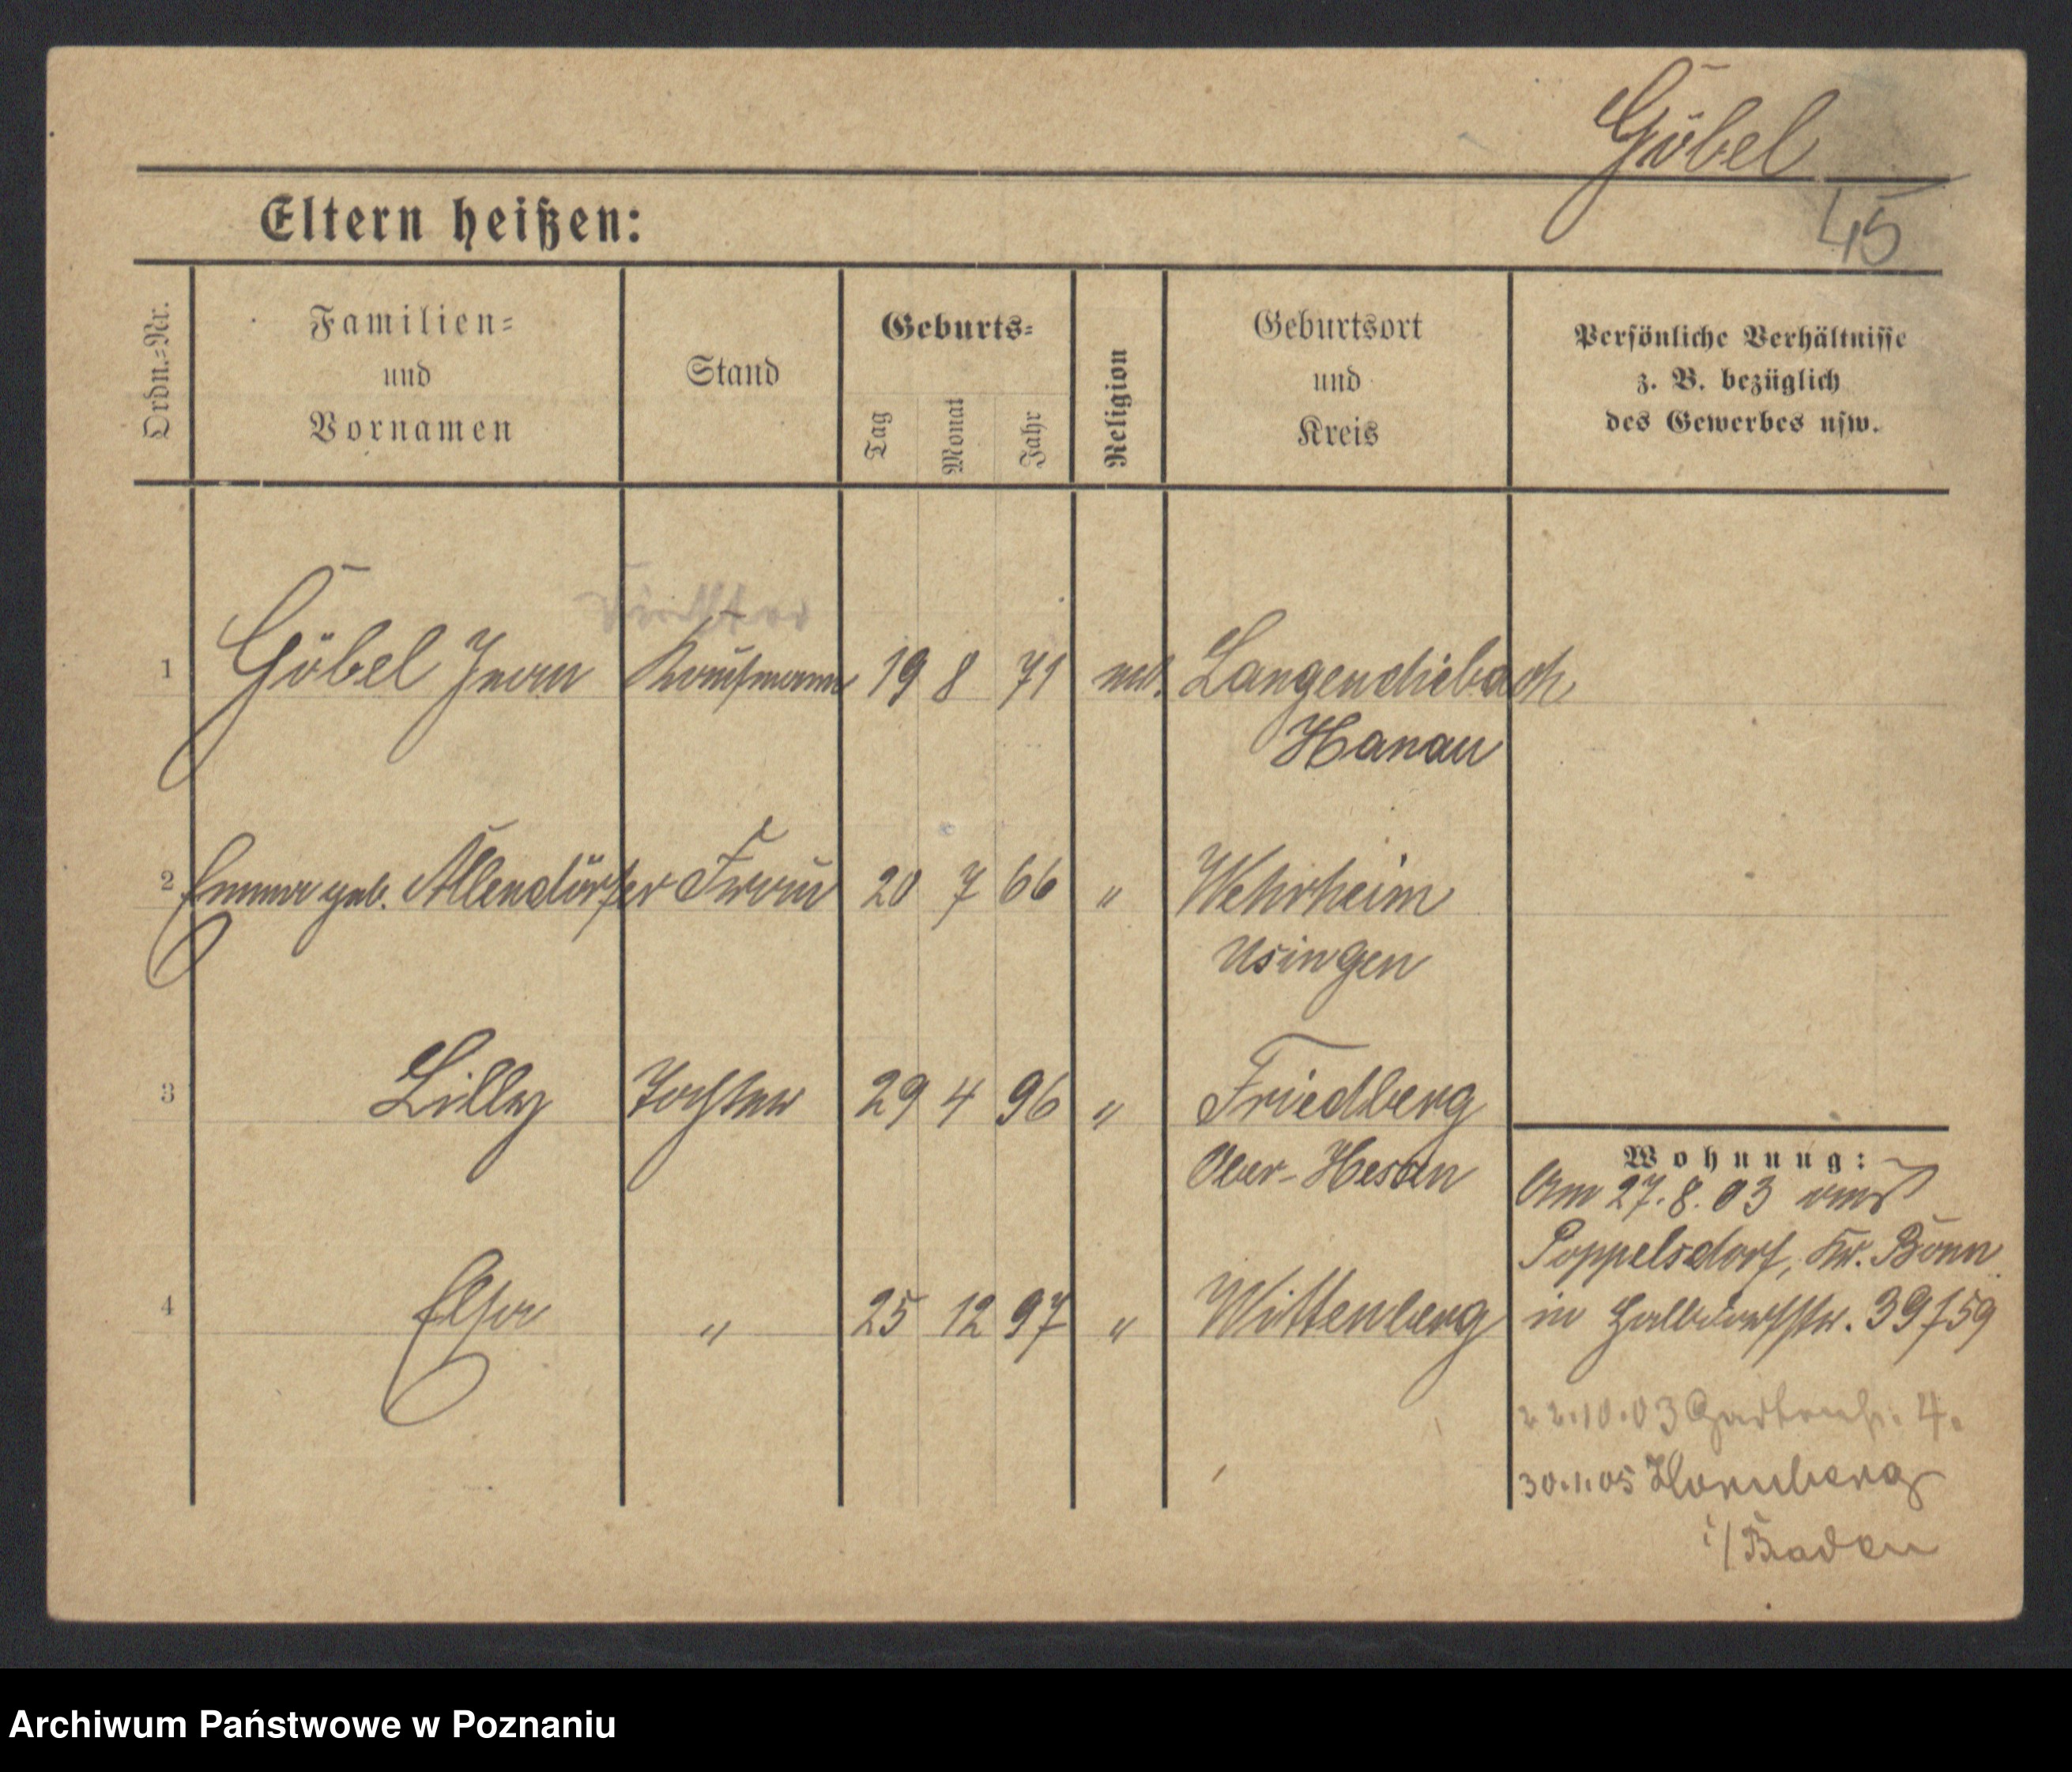 Göbel
45
Eltern heißen:
Ordn.-Nr.
Familien-
und
Vornamen
Stand
Geburts-
Tag
Monat
Jahr
Religion
Geburtsort
und
Kreis
Persönliche Verhältnisse
z. B. bezüglich
des Gewerbes usw.
1 Göbel Jean Kaufmann 19 8 71 Langendiebach
Hanau
2 Emma geb. Allendörfer Frau 20 7 66 " Wehrheim
Usingen
3 Lilly Tochter 29 4 96 " Friedberg
Ober-Hessen
4 Elsa " 25 12 97 " Wittenberg
Wohnung:
Am 27.8.03 aus
Poppelsdorf, Kr. Bonn
in Halbdorfstr. 39/59
22.10.03 Gartenstr. 4.
30.1.05 Hornberg
i/Baden
Archiwum Państwowe w Poznaniu